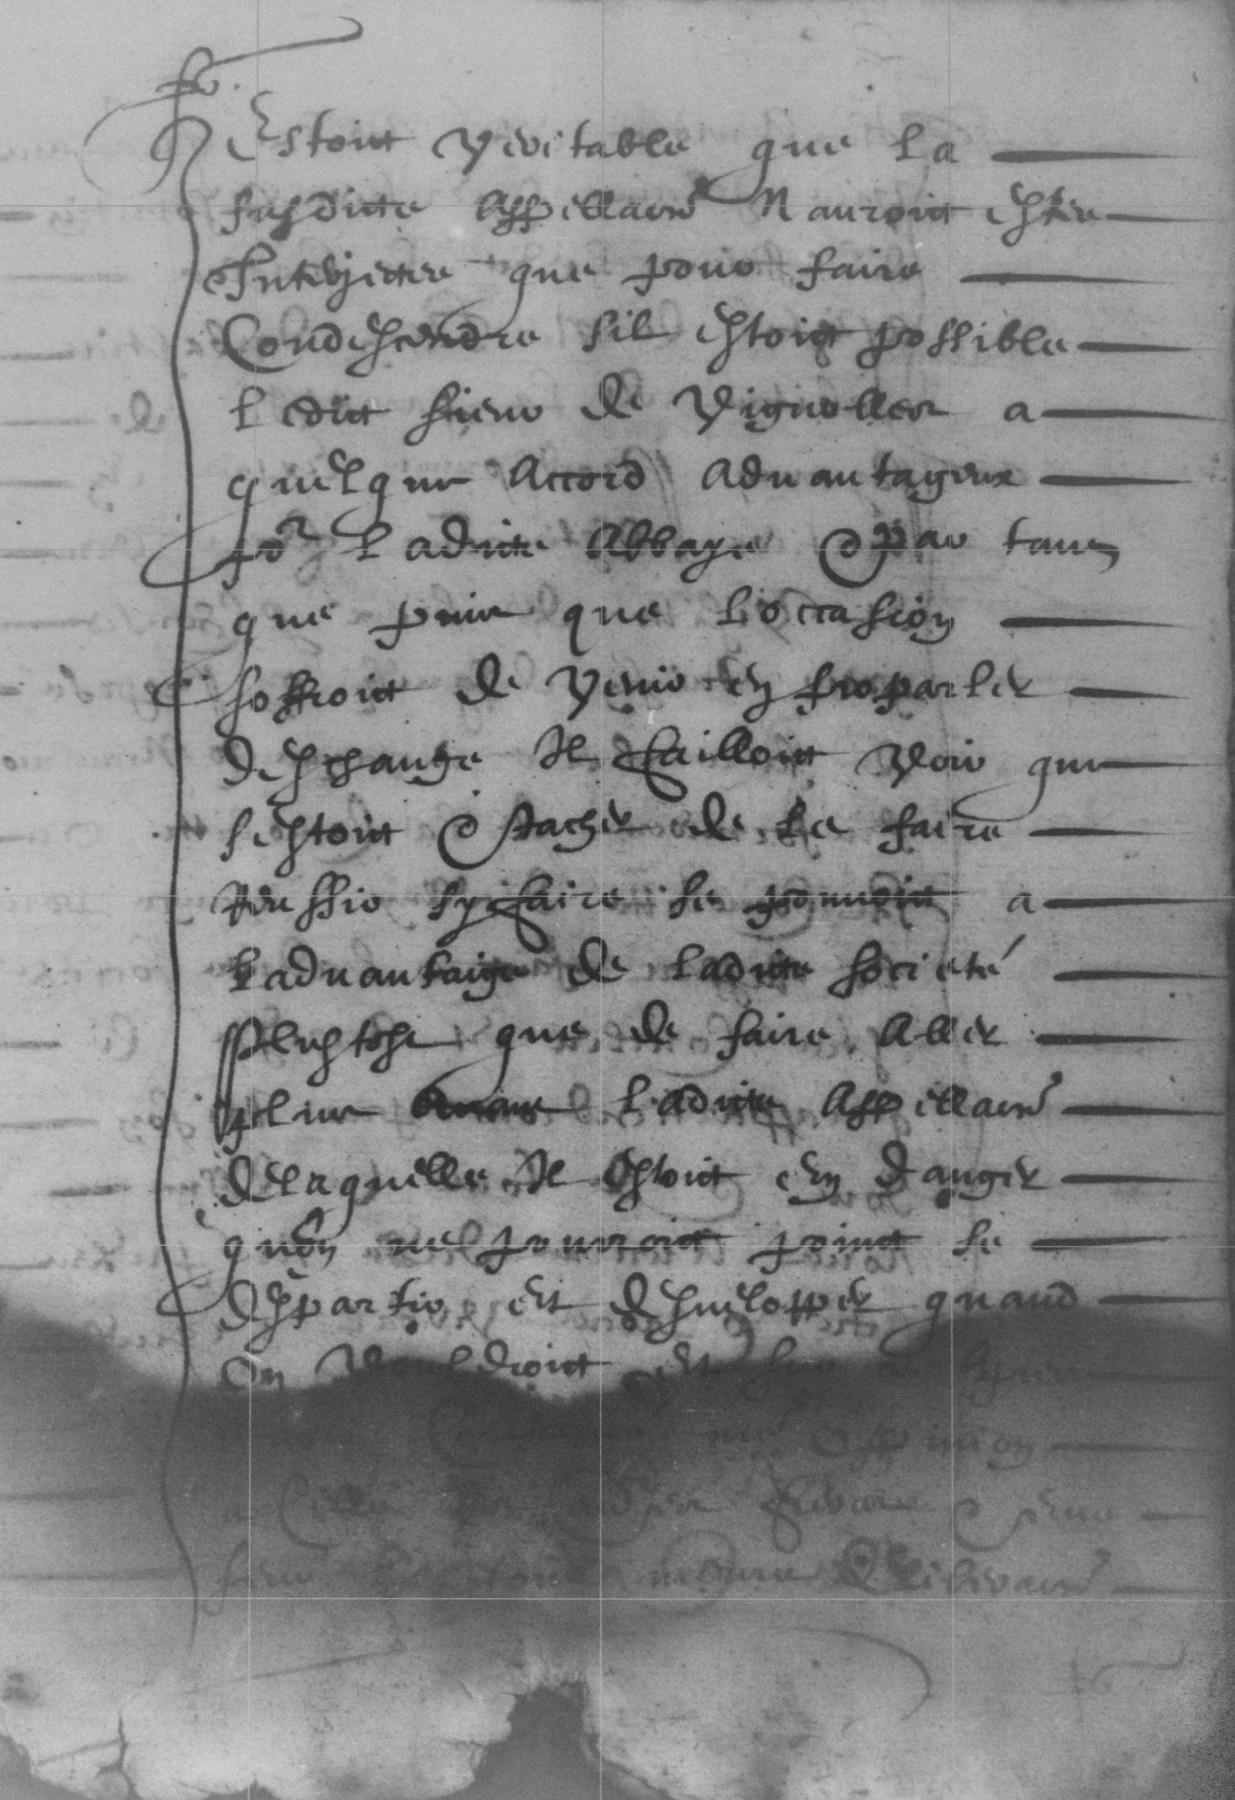 Estoit veritable que la
susdicte appellaõn nauroit esté
Interjectée que pour faire
Condescendre sil estoit possible
ledict sieur de Vignolles a
quelque accord aduantageux
por ladicte abbaye & par tant
que puis que loccasion
soffroit de venir en proparler
deschange Il failloit voir que
sestoit & tascher de le faire
Reussir sy faire se pouuoit a
laduantaige de ladicte societé
Plustost que de faire aller
plus ladicte appellaõn
de laquelle Il estoit en danger
quon ne pourroit point se
despartir et desueloper quand
on vouldroit
oppinion
mesme deliberaõn